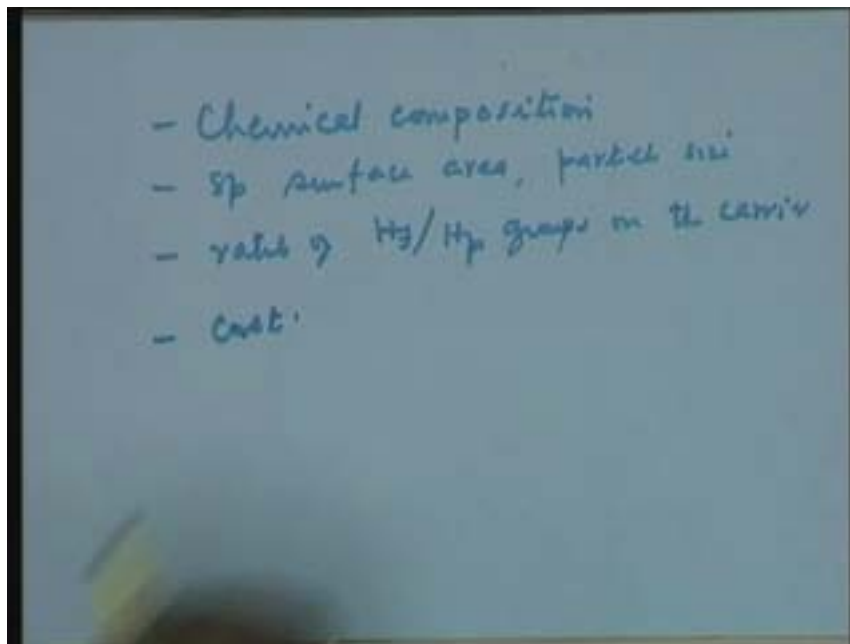 - Chemical composition
- Sp surface area, particle size
- ratio of Hy/Hp groups on the carrier
- Cost.